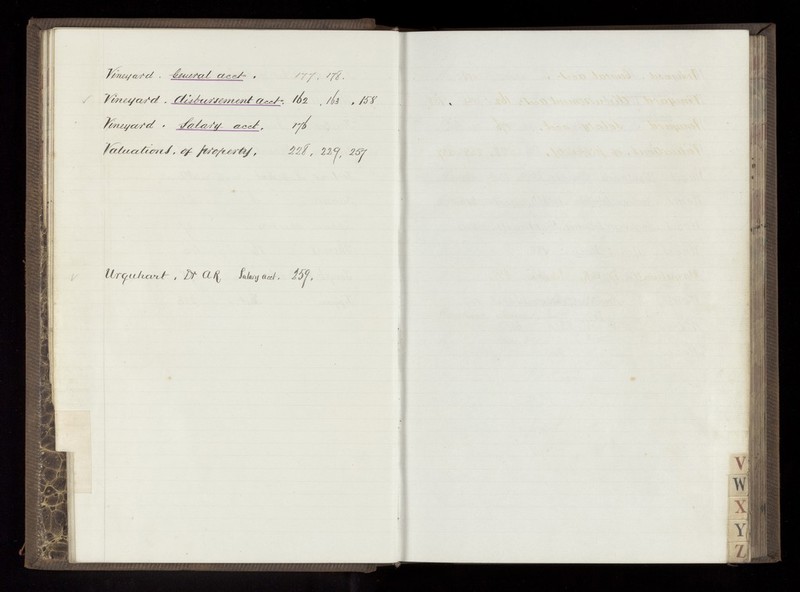 Vineyard . General acct . 177 . 178 .
Vineyard . disbursement acct . 162 . 163 . 158
Vineyard . Salary acct . 176
Valuations . of property . 228 . 229 . 257
Urquhart . Dr A R Salary acct . 259 .
V
W
X
Y
Z